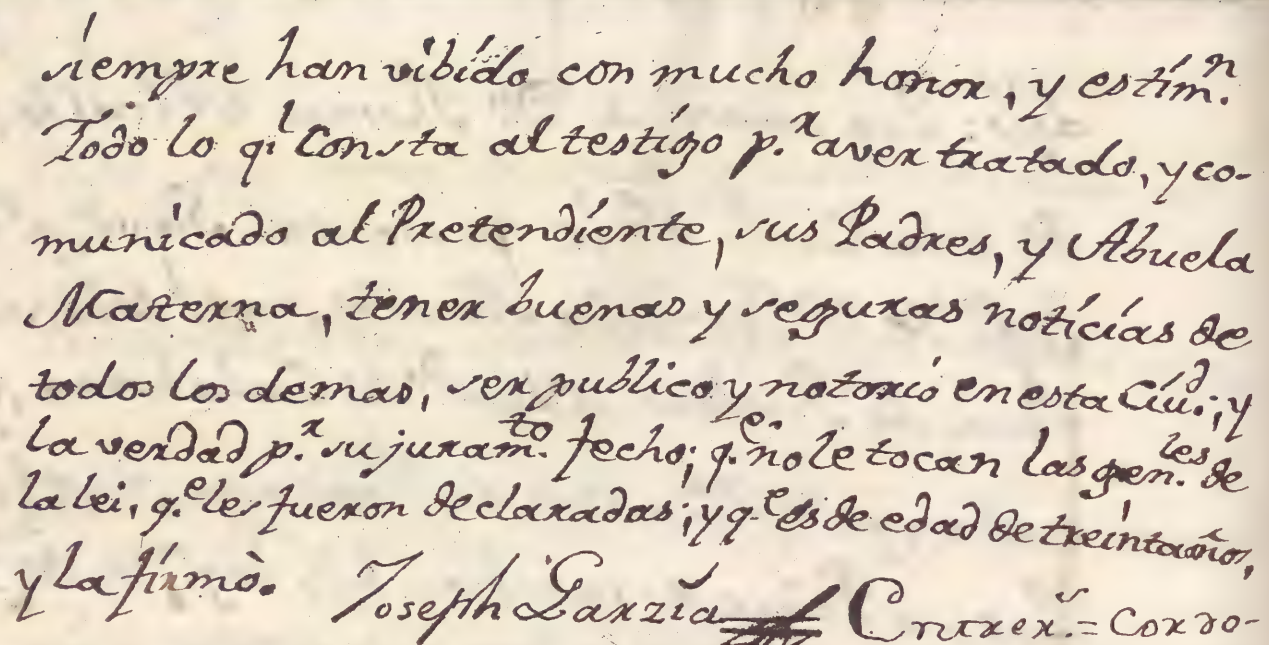 siempre han vibido con mucho honor, y estim.n
Todo lo ql Consta al testigo p.r aver tratado, y co-
municado al Pretendiente, sus Padres, y Abuela
Materna, tener buenas y seguras noticias de
todos los demas, ser publico y notorio en esta Ciud.; y
la verdad p.r su juram.to fecho; q.e no le tocan las gen.les de
la lei, q.e les fueron declaradas; y q.e es de edad de treinta años,
y la firmò. Joseph Garzia = Cordo-